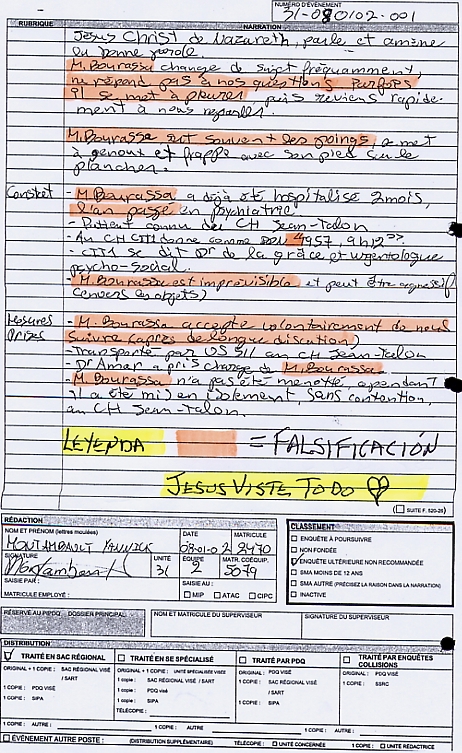 NUMÉRO D'ÉVÉNEMENT
31-080102-001
RUBRIQUE NARRATION
Jesus Christ de Nazareth, parle et amène
la bonne parole
M. Bourassa change de sujet fréquamment,
ne répond pas à nos questions. Parfois
il se met à pleurer, puis reviens rapide-
ment à nous reparler.
M. Bourassa sert souvent les poings, se met
à genoux et frappe avec son pied sur le
plancher.
Constat - M. Bourassa a déjà été hospitalisé 2 mois,
l'an passé en psychiatrie
- Patient connu du CH Jean-Talon
- Au CH CTT1 donne comme DDN 1957, 9h12
- CTT1 se dit Dr de la grâce et urgentologue
psycho-social.
- M. Bourassa est imprévisible et peut être agressif
(envers les objets)
Mesures - M. Bourassa accepte volontairement de nous
Prises suivre (après de longue discution)
- Transporté par US 911 au CH Jean-Talon
- Dr Amar a pris charge de M. Bourassa
- M. Bourassa n'a pas été menotté, cependant
il a été mis en isolement, sans contention,
au CH Jean-Talon.
LEYENDA = FALSIFICACIÓN
JESUS VISTE TODO
SUITE F. 520-26
RÉDACTION
NOM ET PRÉNOM (lettres moulées) DATE MATRICULE
MONTAMBAULT YANNICK 08-01-02 2470
SIGNATURE UNITÉ GROUPE MATR. COÉQUIP.
31 2 5079
SAISIE PAR : SAISIE AU :
MATRICULE EMPLOYÉ : MIP ATAC CIPC
CLASSEMENT
ENQUÊTE À POURSUIVRE
NON FONDÉE
ENQUÊTE ULTÉRIEURE NON RECOMMANDÉE
SMA MOINS DE 12 ANS
SMA AUTRE (PRÉCISEZ LA RAISON DANS LA NARRATION)
INACTIVE
RÉSERVÉ AU PIPDQ DOSSIER PRINCIPAL NOM ET MATRICULE DU SUPERVISEUR SIGNATURE DU SUPERVISEUR
DISTRIBUTION
TRAITÉ EN SAC RÉGIONAL
ORIGINAL + 1 COPIE : SAC RÉGIONAL VISÉ / SART
1 COPIE : PDQ VISÉ
1 COPIE : SIPA
1 COPIE : AUTRE
TRAITÉ EN SE SPÉCIALISÉ
ORIGINAL + 1 COPIE : UNITÉ SPÉCIALISÉE VISÉE
1 copie : SAC RÉGIONAL VISÉ / SART
1 copie : PDQ visé
1 copie : SIPA
TÉLÉCOPIE :
1 COPIE : AUTRE
TRAITÉ PAR PDQ
ORIGINAL : PDQ VISÉ
1 COPIE : SAC RÉGIONAL VISÉ / SART
1 COPIE : SIPA
1 COPIE : AUTRE
TRAITÉ PAR ENQUÊTES COLLISIONS
ORIGINAL : PDQ VISÉ
1 COPIE : SSRC
1 COPIE : AUTRE
ÉVÉNEMENT AUTRE POSTE : (DISTRIBUTION SUPPLÉMENTAIRE) TÉLÉCOPIE : UNITÉ CONCERNÉE 1 COPIE : UNITÉ RÉDACTRICE